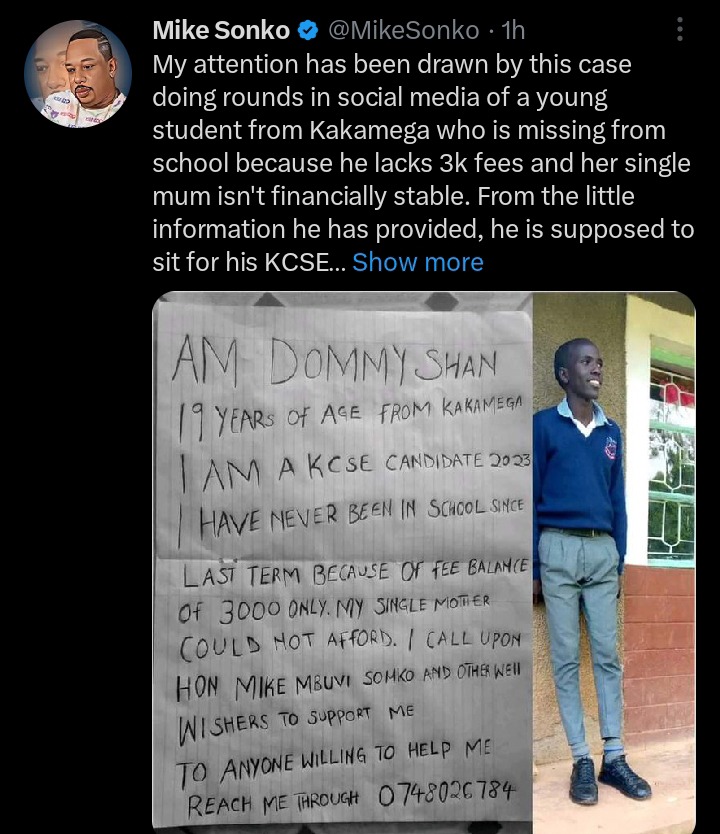 Mike Sonko @MikeSonko · 1h
My attention has been drawn by this case
doing rounds in social media of a young
student from Kakamega who is missing from
school because he lacks 3k fees and her single
mum isn't financially stable. From the little
information he has provided, he is supposed to
sit for his KCSE... Show more
AM DOMMY SHAN
19 YEARS OF AGE FROM KAKAMEGA
I AM A KCSE CANDIDATE 2023
I HAVE NEVER BEEN IN SCHOOL SINCE
LAST TERM BECAUSE OF FEE BALANCE
OF 3000 ONLY. MY SINGLE MOTHER
COULD NOT AFFORD. I CALL UPON
HON MIKE MBUVI SONKO AND OTHER WELL
WISHERS TO SUPPORT ME
TO ANYONE WILLING TO HELP ME
REACH ME THROUGH 0748026784